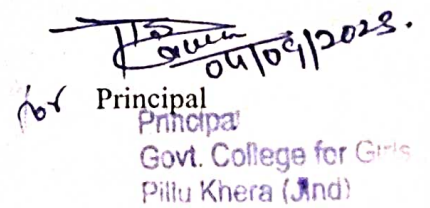 04/09/2023.
for Principal
Principal
Govt. College for Girls
Pillu Khera (Jind)